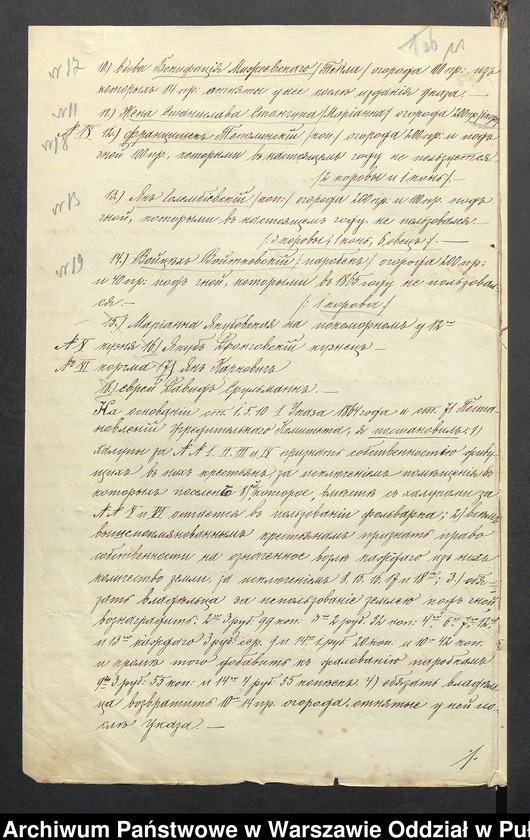 10.) вдова Бонифація Маіовскаго / Текла / огорода 100 пр: изъ
которыхъ 14 пр. отняты у нее послѣ изданія указа.—
№ 17
11.) Жена Станислава /Маріанна/ огорода 200 пр:
№ 11
№ 18 12.) Францишекъ /коп:/ огорода 200 пр: и подъ
гной 100 пр., которыми въ настоящемъ году не пользуется
/2 коровы и 1 конь/.—
13.) Янъ /коп:/ огорода 200 пр. и 100 пр. подъ
гной, которыми въ настоящемъ году не пользовался.
/: 3 коровы, 1 конь, 5 овецъ /.—
14.) Войцехъ Войтковскій / паробекъ / огорода 200 пр:
и 40 пр: подъ гной, которыми въ 1865 году не пользовал-
№ 19
ся.— /: 1 корова /
15.) Маріанна Якубовская на покоморномъ у 12го
№ V кузня 16) Якубъ кузнецъ—
№ VI корчма 17) Янъ Карповичъ
18.) еврей Давидъ.—
На основаніи ст. 1, 5, 10 Указа 1864 года и ст. 71 Поста-
новленій Учредительнаго Комитета, я постановилъ: 1)
халупы за №№ I. II. III и IV признать собственностію живу-
щихъ въ нихъ крестьянъ, за исключеніемъ помѣщенія въ
которыхъ которое, вмѣстѣ съ халупами за
№№ V и VI остается въ пользованіи фольварка; 2) всѣмъ
вышеупомянованнымъ крестьянамъ признать право
собственности на означенное возлѣ каждаго изъ нихъ
количество земли, за исключеніемъ 8. 15. 16. 17 и 18го; 3.) обя-
зать владѣльца за использованіе землею подъ гной
вознаградить: 2му 3 руб. 99 коп: 3му 2 руб. 32 коп: 4му 6му 7му 12му
и 13му каждаго 3 руб. сер. и 14му 1 руб. 20 коп: и 10му 42 коп:
и кромѣ того добавить къ жалованію паробкамъ
9му 3 руб: 55 коп: и 14му 4 руб. 55 копѣекъ. 4) обязать владѣль-
ца возвратить 10му 14 пр. огорода, отнятые у ней по-
слѣ Указа.—
Archiwum Państwowe w Warszawie Oddział w Pu